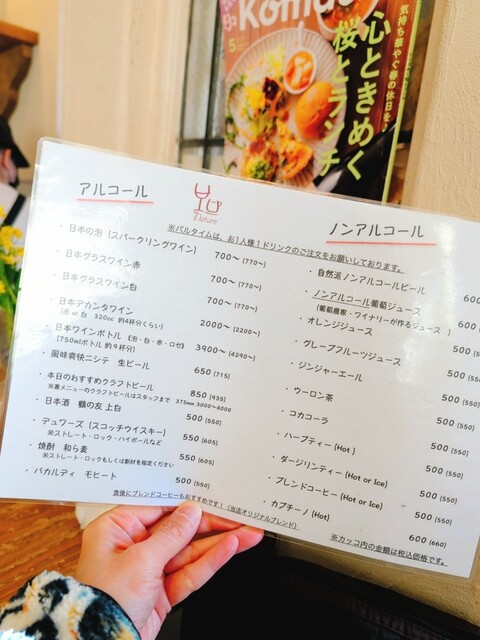 Komachi
5
気持ち華やぐ春の休日を。
心ときめく
桜とランチ
アルコール
nature
ノンアルコール
※バルタイムは、お1人様1ドリンクのご注文をお願いしております。
・日本の泡 (スパークリングワイン) 700〜 (770〜)
・日本グラスワイン赤 700〜 (770〜)
・日本グラスワイン白 700〜 (770〜)
・日本デカンタワイン 2000〜 (2200〜)
(赤 or 白 320cc 約4杯分くらい)
・日本ワインボトル (泡・白・赤・ロゼ) 3900〜 (4290〜)
(750mlボトル 約9杯分)
・風味爽快ニシテ 生ビール 650 (715)
・本日のおすすめクラフトビール 850 (935)
※裏メニューのクラフトビールはスタッフまで 375mm 3000〜4000
・日本酒 鶴の友 上白 500 (550)
・デュワーズ (スコッチウイスキー) 550 (605)
※ストレート・ロック・ハイボールなど
・焼酎 和ら麦 550 (605)
※ストレート・ロックもしくは割材を指定ください
・バカルディ モヒート 500 (550)
食後にブレンドコーヒーもおすすめです！(当店オリジナルブレンド)
・自然派ノンアルコールビール 600
・ノンアルコール葡萄ジュース 600
(葡萄農家・ワイナリーが作るジュース )
・オレンジジュース 500
・グレープフルーツジュース 500 (55
・ジンジャーエール 500 (550
・ウーロン茶 500 (550)
・コカコーラ 500 (550)
・ハーブティー (Hot ) 500 (550)
・ダージリンティー (Hot or Ice) 500 (550)
・ブレンドコーヒー (Hot or Ice) 500 (550)
・カプチーノ (Hot) 600 (660)
※カッコ内の金額は税込価格です。